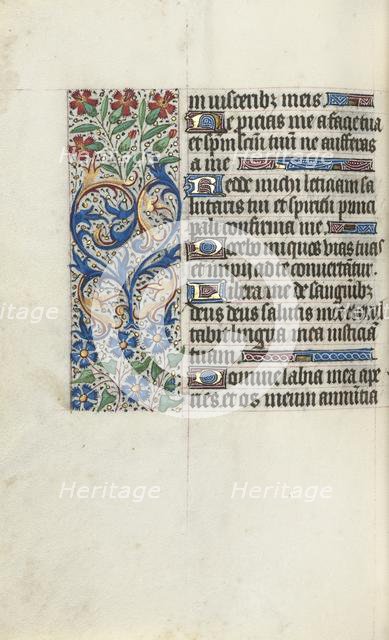 in uisceribz meis
Ne proicias me a facie tua
et spm scm tuu ne auferas
a me
Redde michi leticiam sa
lutaris tui et spiritu princi
pali confirma me
Docebo iniquos vias tuas
et impii ad te conuertatur.
Libera me de sanguibz
deus deus salutis mee
tabit lingua mea iusticia
tuam
Domine labia mea ape
ries. et os meum annutia
Heritage Heritage
Heritage Heritage
Heritage Heritage